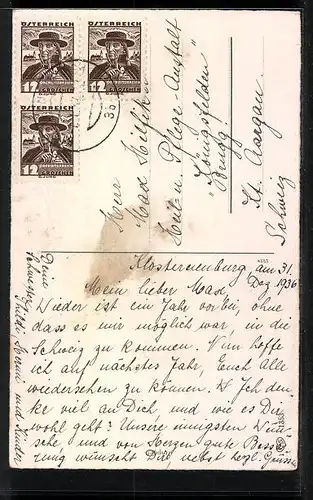 ÖSTERREICH
ÖSTERREICH
12 GROSCHEN
12 GROSCHEN
ÖSTERREICH
12 GROSCHEN
Herr
Max
Heil u. Pflege-Anstalt
"Königsfelden"
Brugg
Kt. Aargau
Schweiz
Klosterneuburg am 31.
Dez 1936
Mein lieber Max,
Wieder ist ein Jahr vorbei, ohne
dass es mir möglich war, in die
Schweiz zu kommen. Nun hoffe
ich auf nächstes Jahr, Euch alle
wiedersehen zu können. Ich den-
ke viel an Dich, und wie es Dir
wohl geht? Unsere innigsten Wün-
sche und von Herzen gute Besse-
rung wünscht Dir, nebst herzl. Grüsse
Deine
Schwester und Kinder